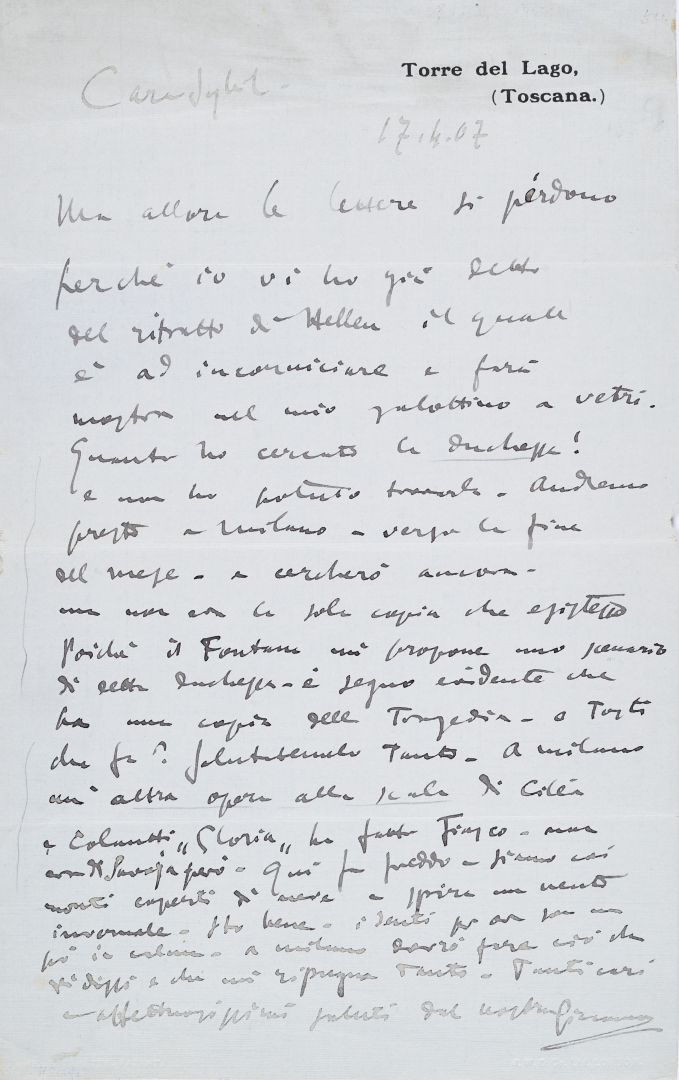 Torre del Lago,
(Toscana.)
Cara Sybil -
17.4.07
Ma allora le lettere si pérdono
perchè io vi ho già detto
del ritratto di Helleu il quale
è ad incorniciare e farà
mostra nel mio salottino a vetri.
Quanto ho cercato la duchessa!
e non ho potuto trovarla - Andremo
presto a Milano - verso la fine
del mese - e cercherò ancora -
ma non era la sola copia che esistesse
Poichè il Fontana mi propone uno scenario
di detta duchessa - è segno evidente che
ha una copia della Tragedia - e Tosti
che fa? Salutatemelo tanto - A Milano
un' altra opera alla Scala di Cilèa
e Colautti "Gloria" ha fatto Fiasco - non
era di Savoja però - Qui fa freddo e siamo coi
monti coperti di neve e spira un vento
invernale - Sto bene - i denti per ora son un
pò in calma - a Milano dovrò fare ciò che
vi dissi e che mi ripugna tanto - Tanti cari
e affettuosissimi saluti dal vostro Giacomo